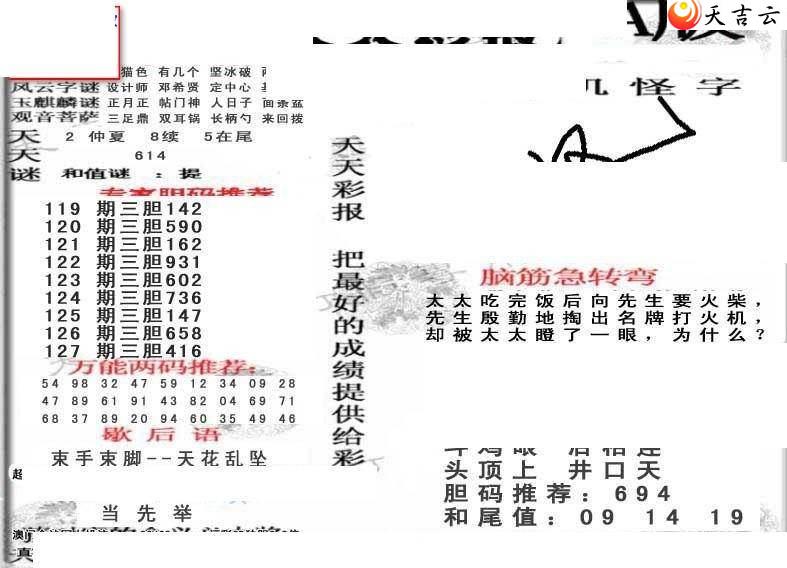 天吉云
猫色 有几个 坚冰破
风云字谜 设计师 邓希贤 定中心
玉麒麟谜 正月正 帖门神 人日子 面条盆
观音菩萨 三足鼎 双耳锅 长柄勺 来回拨
天 2 仲夏 8续 5在尾
天 614
谜 和值谜 : 提
专家胆码推荐
119 期三胆142
120 期三胆590
121 期三胆162
122 期三胆931
123 期三胆602
124 期三胆736
125 期三胆147
126 期三胆658
127 期三胆416
万能两码推荐:
54 98 32 47 59 12 34 09 28
47 89 61 91 43 82 04 69 71
68 37 89 20 94 60 35 49 46
歇后语
束手束脚--天花乱坠
超
当先举
澳门
天天彩报 把最好的成绩提供给彩
怪字
脑筋急转弯
太太吃完饭后向先生要火柴，
先生殷勤地掏出名牌打火机，
却被太太瞪了一眼，为什么？
头顶上 井口天
胆码推荐: 694
和尾值: 09 14 19